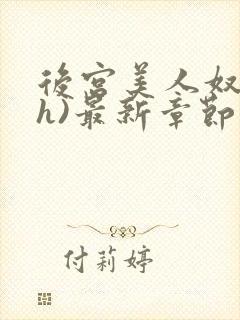 後宮美人奴
h)最新章節
付莉婷